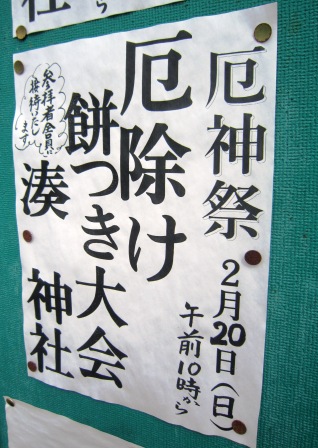 厄神祭
2月20日(日)
午前10時から
厄除け
餅つき大会
湊神社
参拝者全員に
接待いたし
ます